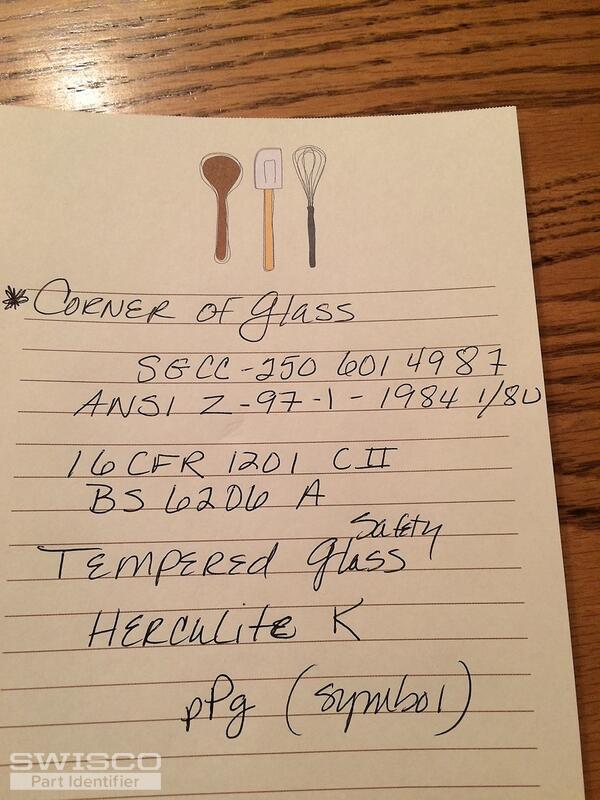 * CORNER OF Glass
SGCC-250 601 4987
ANSI Z-97-1-1984 1/8U
16 CFR 1201 CII
BS 6206 A
TEMPERED Safety Glass
HERCULITE K
PPg (symbol)
SWISCO
Part Identifier